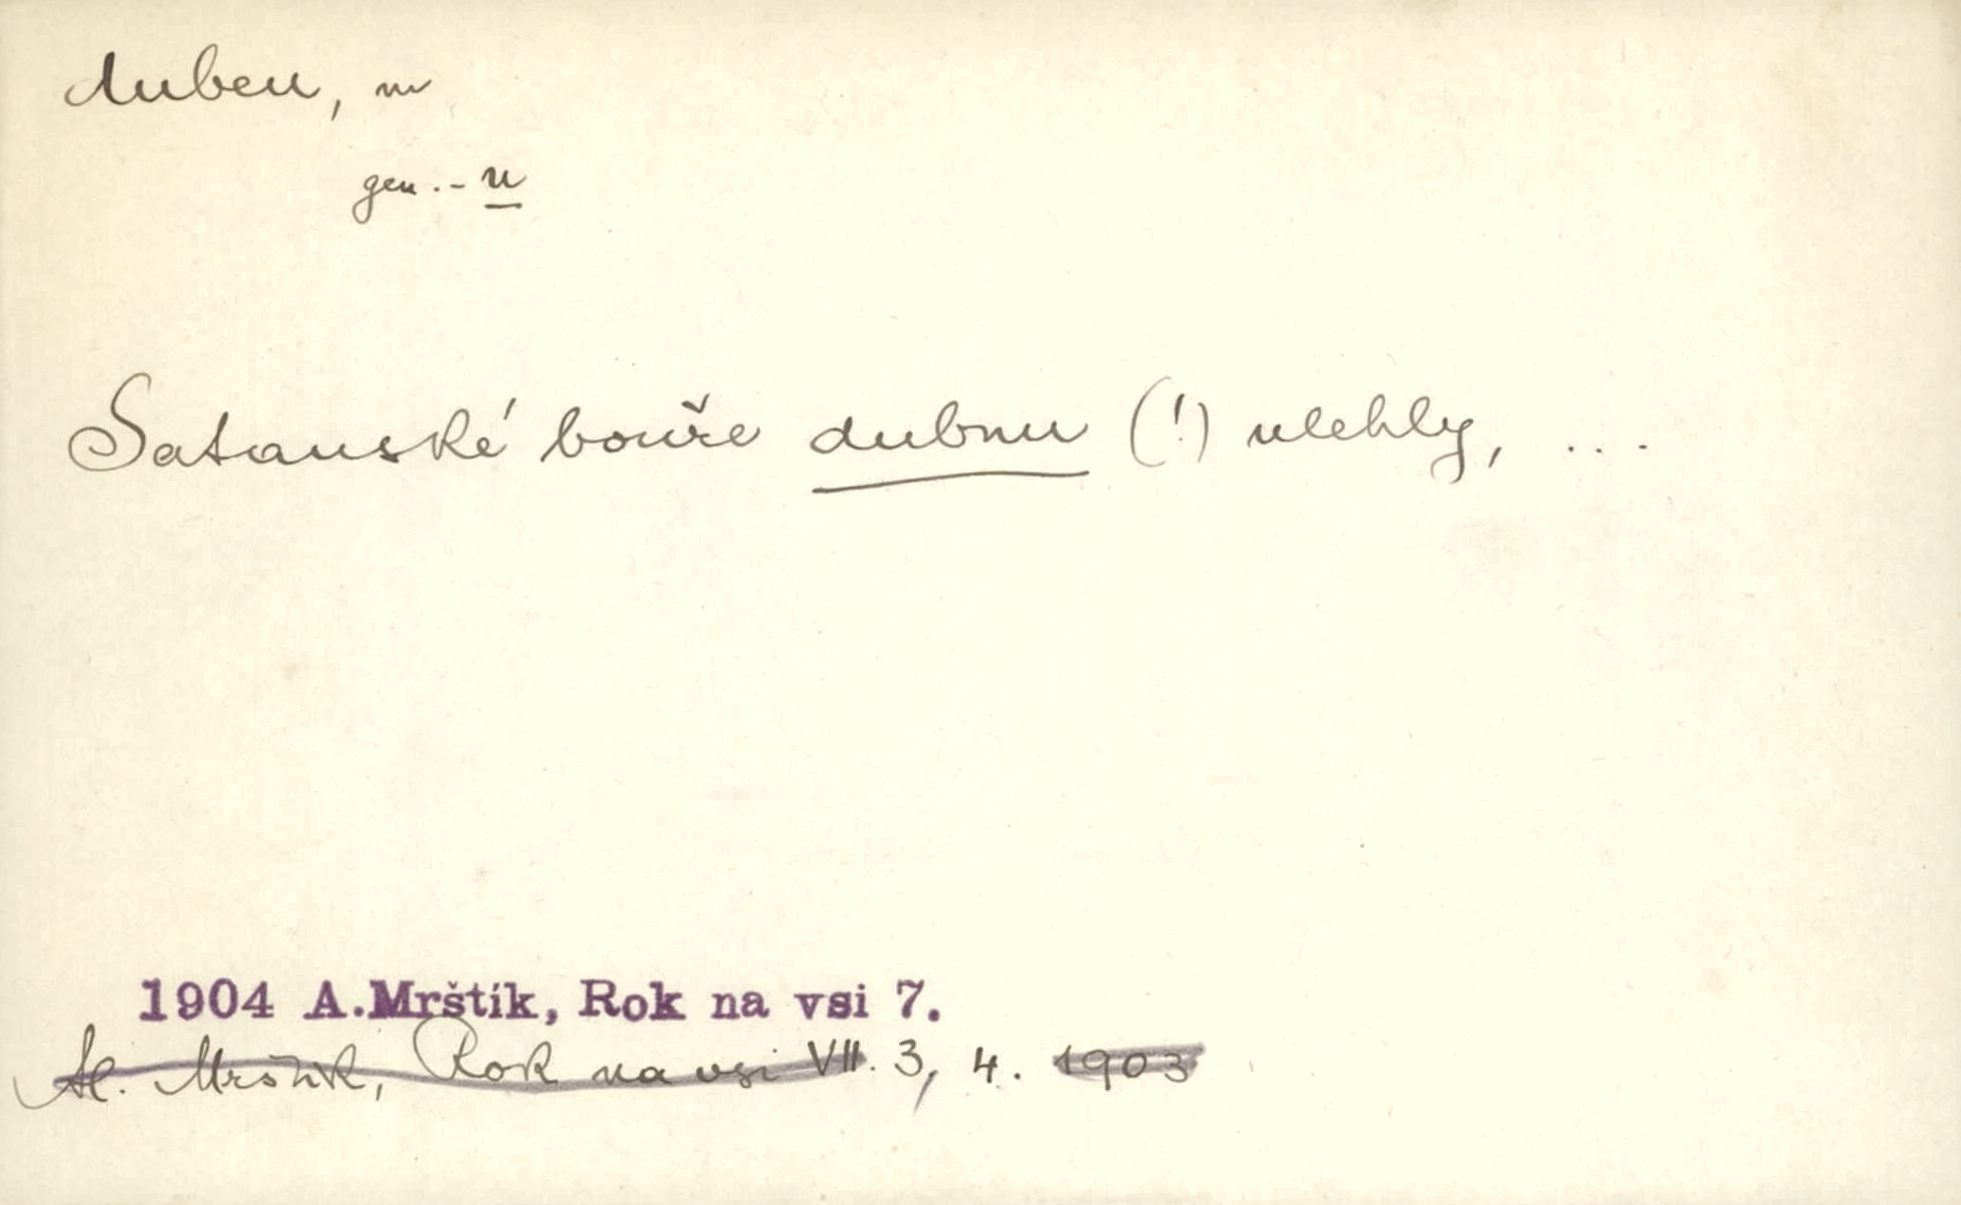 duben, m
gen. - u
Satanské bouře dubnu (!) ulehly, ...
1904 A.Mrštík, Rok na vsi 7.
Al. Mrštík, Rok na vsi VII. 3, 4. 1903